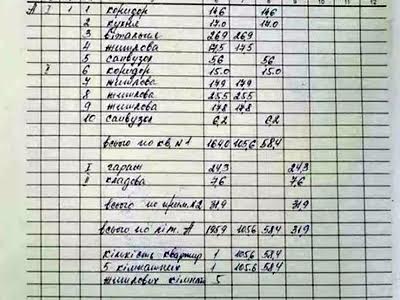 А І 1 1 коридор 14.6 14.6
2 кухня 17.0 17.0
3 вітальня 26.9 26.9
4 житлова 17.5 17.5
5 санвузол 5.6 5.6
6 коридор 15.0 15.0
7 житлова 17.9 17.9
8 житлова 25.5 25.5
9 житлова 17.8 17.8
10 санвузол 6.2 6.2
всього по кв. №1 164.0 105,6 58.4
І гараж 24.3 24.3
ІІ кладова 7.6 7,6
всього по прим.2 31.9 31.9
всього по літ. А 195.9 105.6 58.4 31.9
кількість квартир 1 105.6 58.4
5 кімнатних 1 105.6 58.4
житлових кімнат 5